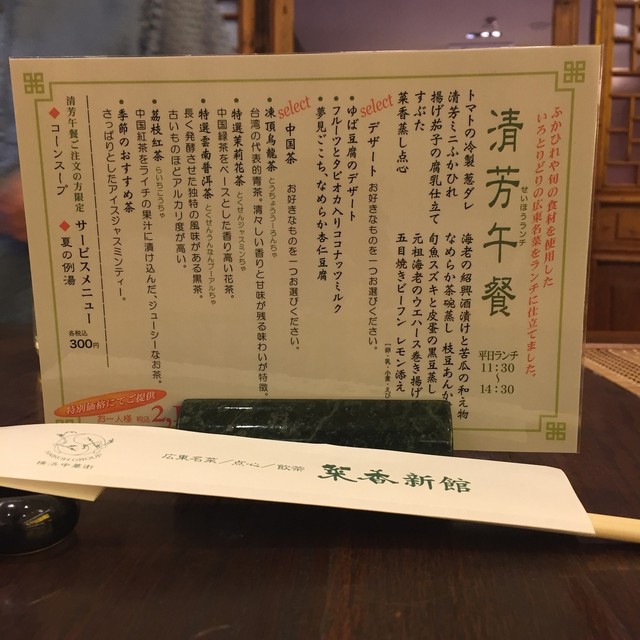 ふかひれや旬の食材を使用した
いろとりどりの広東名菜をランチに仕立てました。
清芳午餐
せいほうランチ
平日ランチ
11:30
〜
14:30
トマトの冷製 葱ダレ
海老の紹興酒漬けと苦瓜の和え物
清芳ミニふかひれ
なめらか茶碗蒸し 枝豆あんかけ
揚げ茄子の腐乳仕立て
旬魚スズキと皮蛋の黒豆蒸し
すぶた
元祖海老のウエハース巻き揚げ
菜香蒸し点心
五目焼きビーフン レモン添え
select デザート お好きなものを一つお選びください。
・ゆば豆腐のデザート
・フルーツとタピオカ入りココナツミルク
・夢見ごこち、なめらか杏仁豆腐
select 中国茶 お好きなものを一つお選びください。
・凍頂烏龍茶 とうちょううーろんちゃ
台湾の代表的青茶。清々しい香りと甘味が残る味わいが特徴。
・特選茉莉花茶 とくせんジャスミンちゃ
中国緑茶をベースとした香り高い花茶。
・特選雲南普洱茶 とくせんうんなんプーアルちゃ
長く発酵させた独特の風味がある黒茶。
古いものほどアルカリ度が高い。
・荔枝紅茶 らいちこうちゃ
中国紅茶をライチの果汁に漬け込んだ、ジューシーなお茶。
・季節のおすすめ茶
さっぱりとしたアイスジャスミンティー。
清芳午餐ご注文の方限定 サービスメニュー
◆コーンスープ ◆夏の例湯
各税込
300円
特別価格にてご提供
お一人様 税込
広東名菜／点心／飲茶 菜香新館
SAIKOH GROUP
横浜中華街